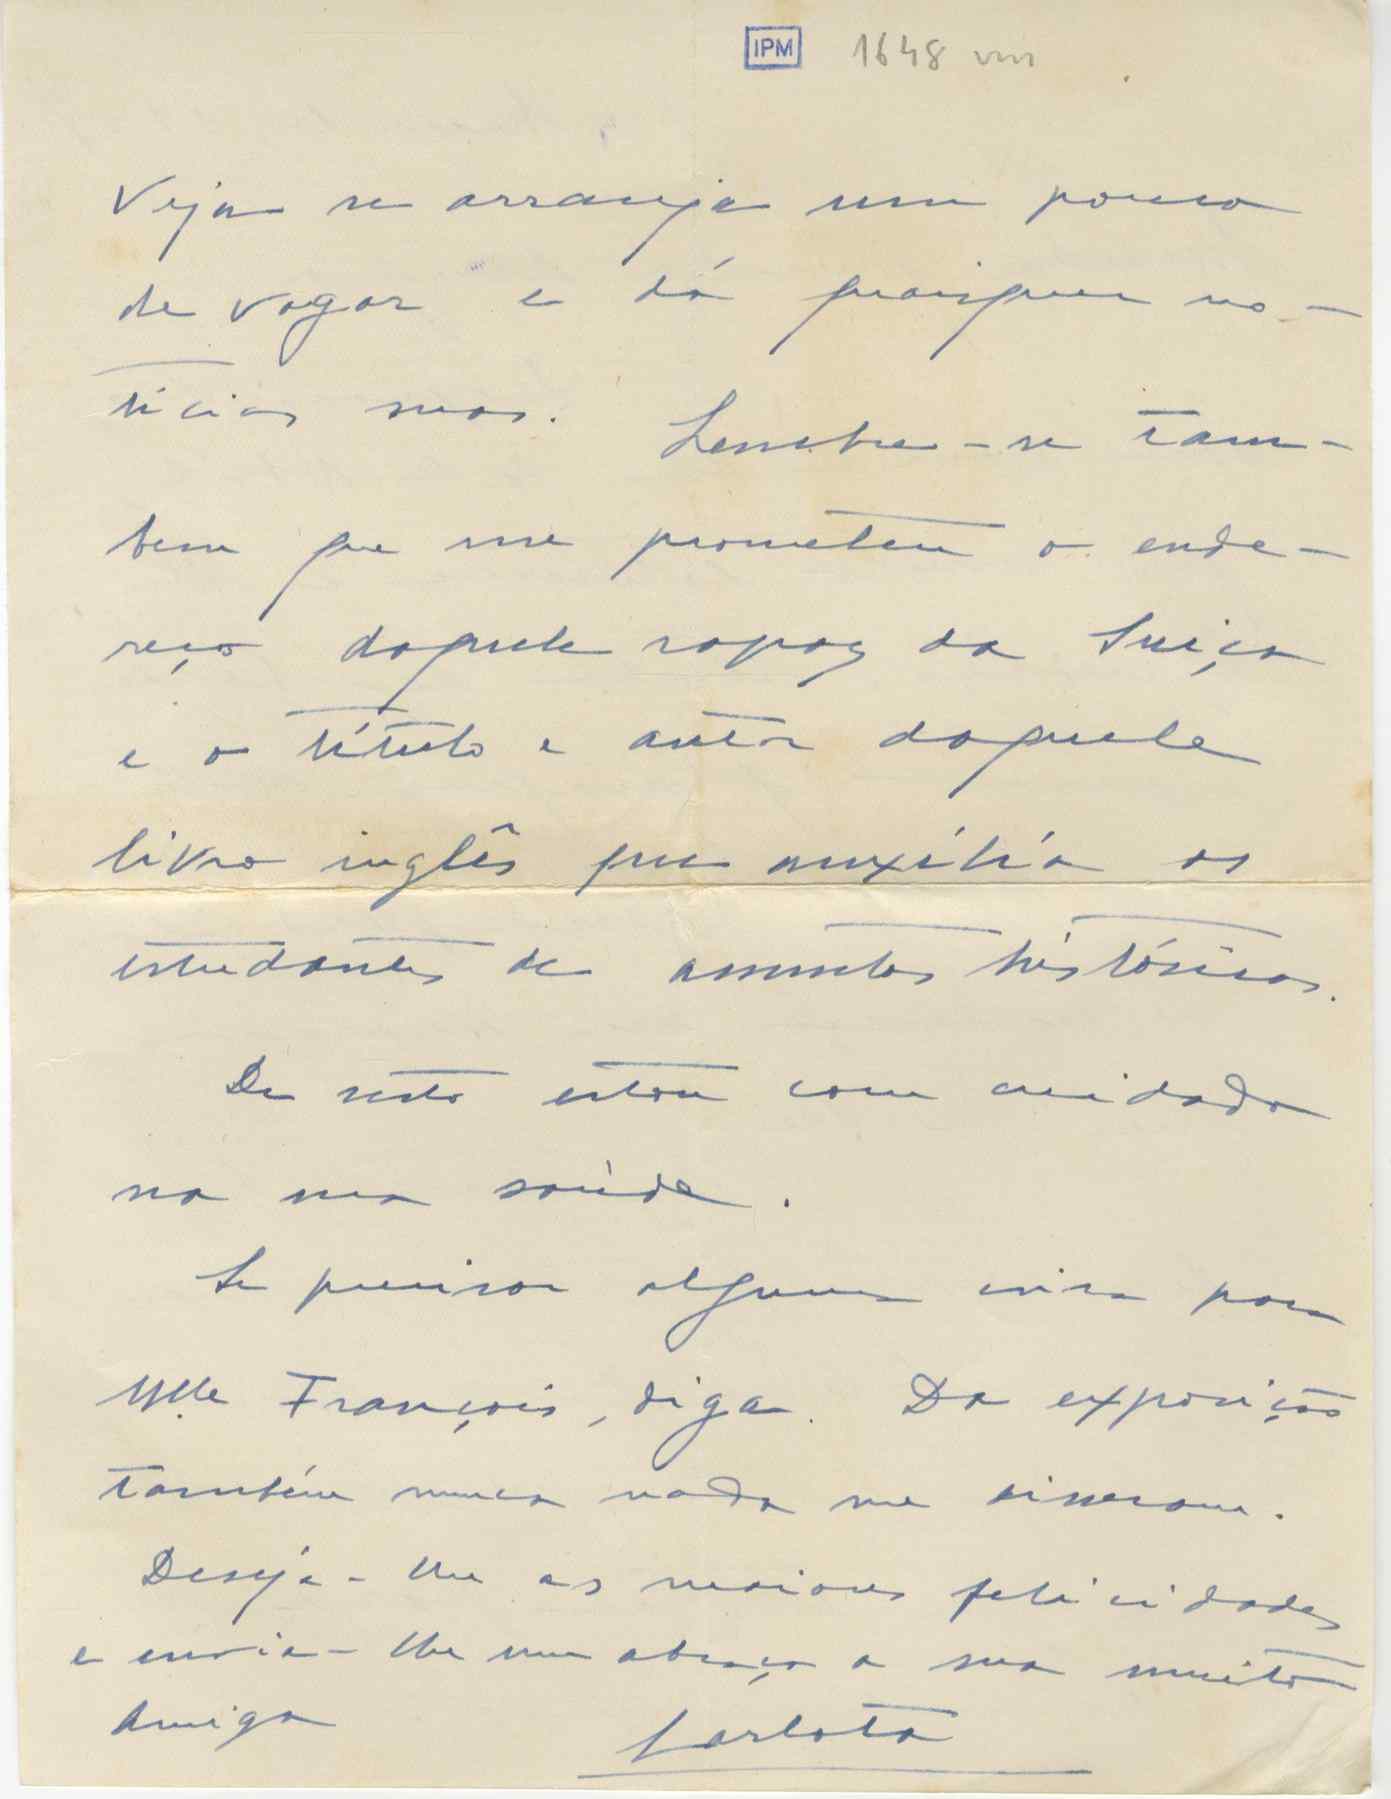 IPM 1648 vm
Veja se arranja um pouco
de vagar e dá quaisquer no-
tícias suas. Lembre-se tam-
bem que me prometeu o ende-
reço daquele rapaz da Suiça
e o título e autor daquele
livro inglês que auxília os
estudantes de assuntos históricos.
De resto estou com cuidado
na sua saúde.
Se precisar alguma coisa para
Mlle François, diga. Da exposição
também nunca nada me disseram.
Deseja-lhe as maiores felicidades
e envia-lhe um abraço a sua muito
Amiga Carlota